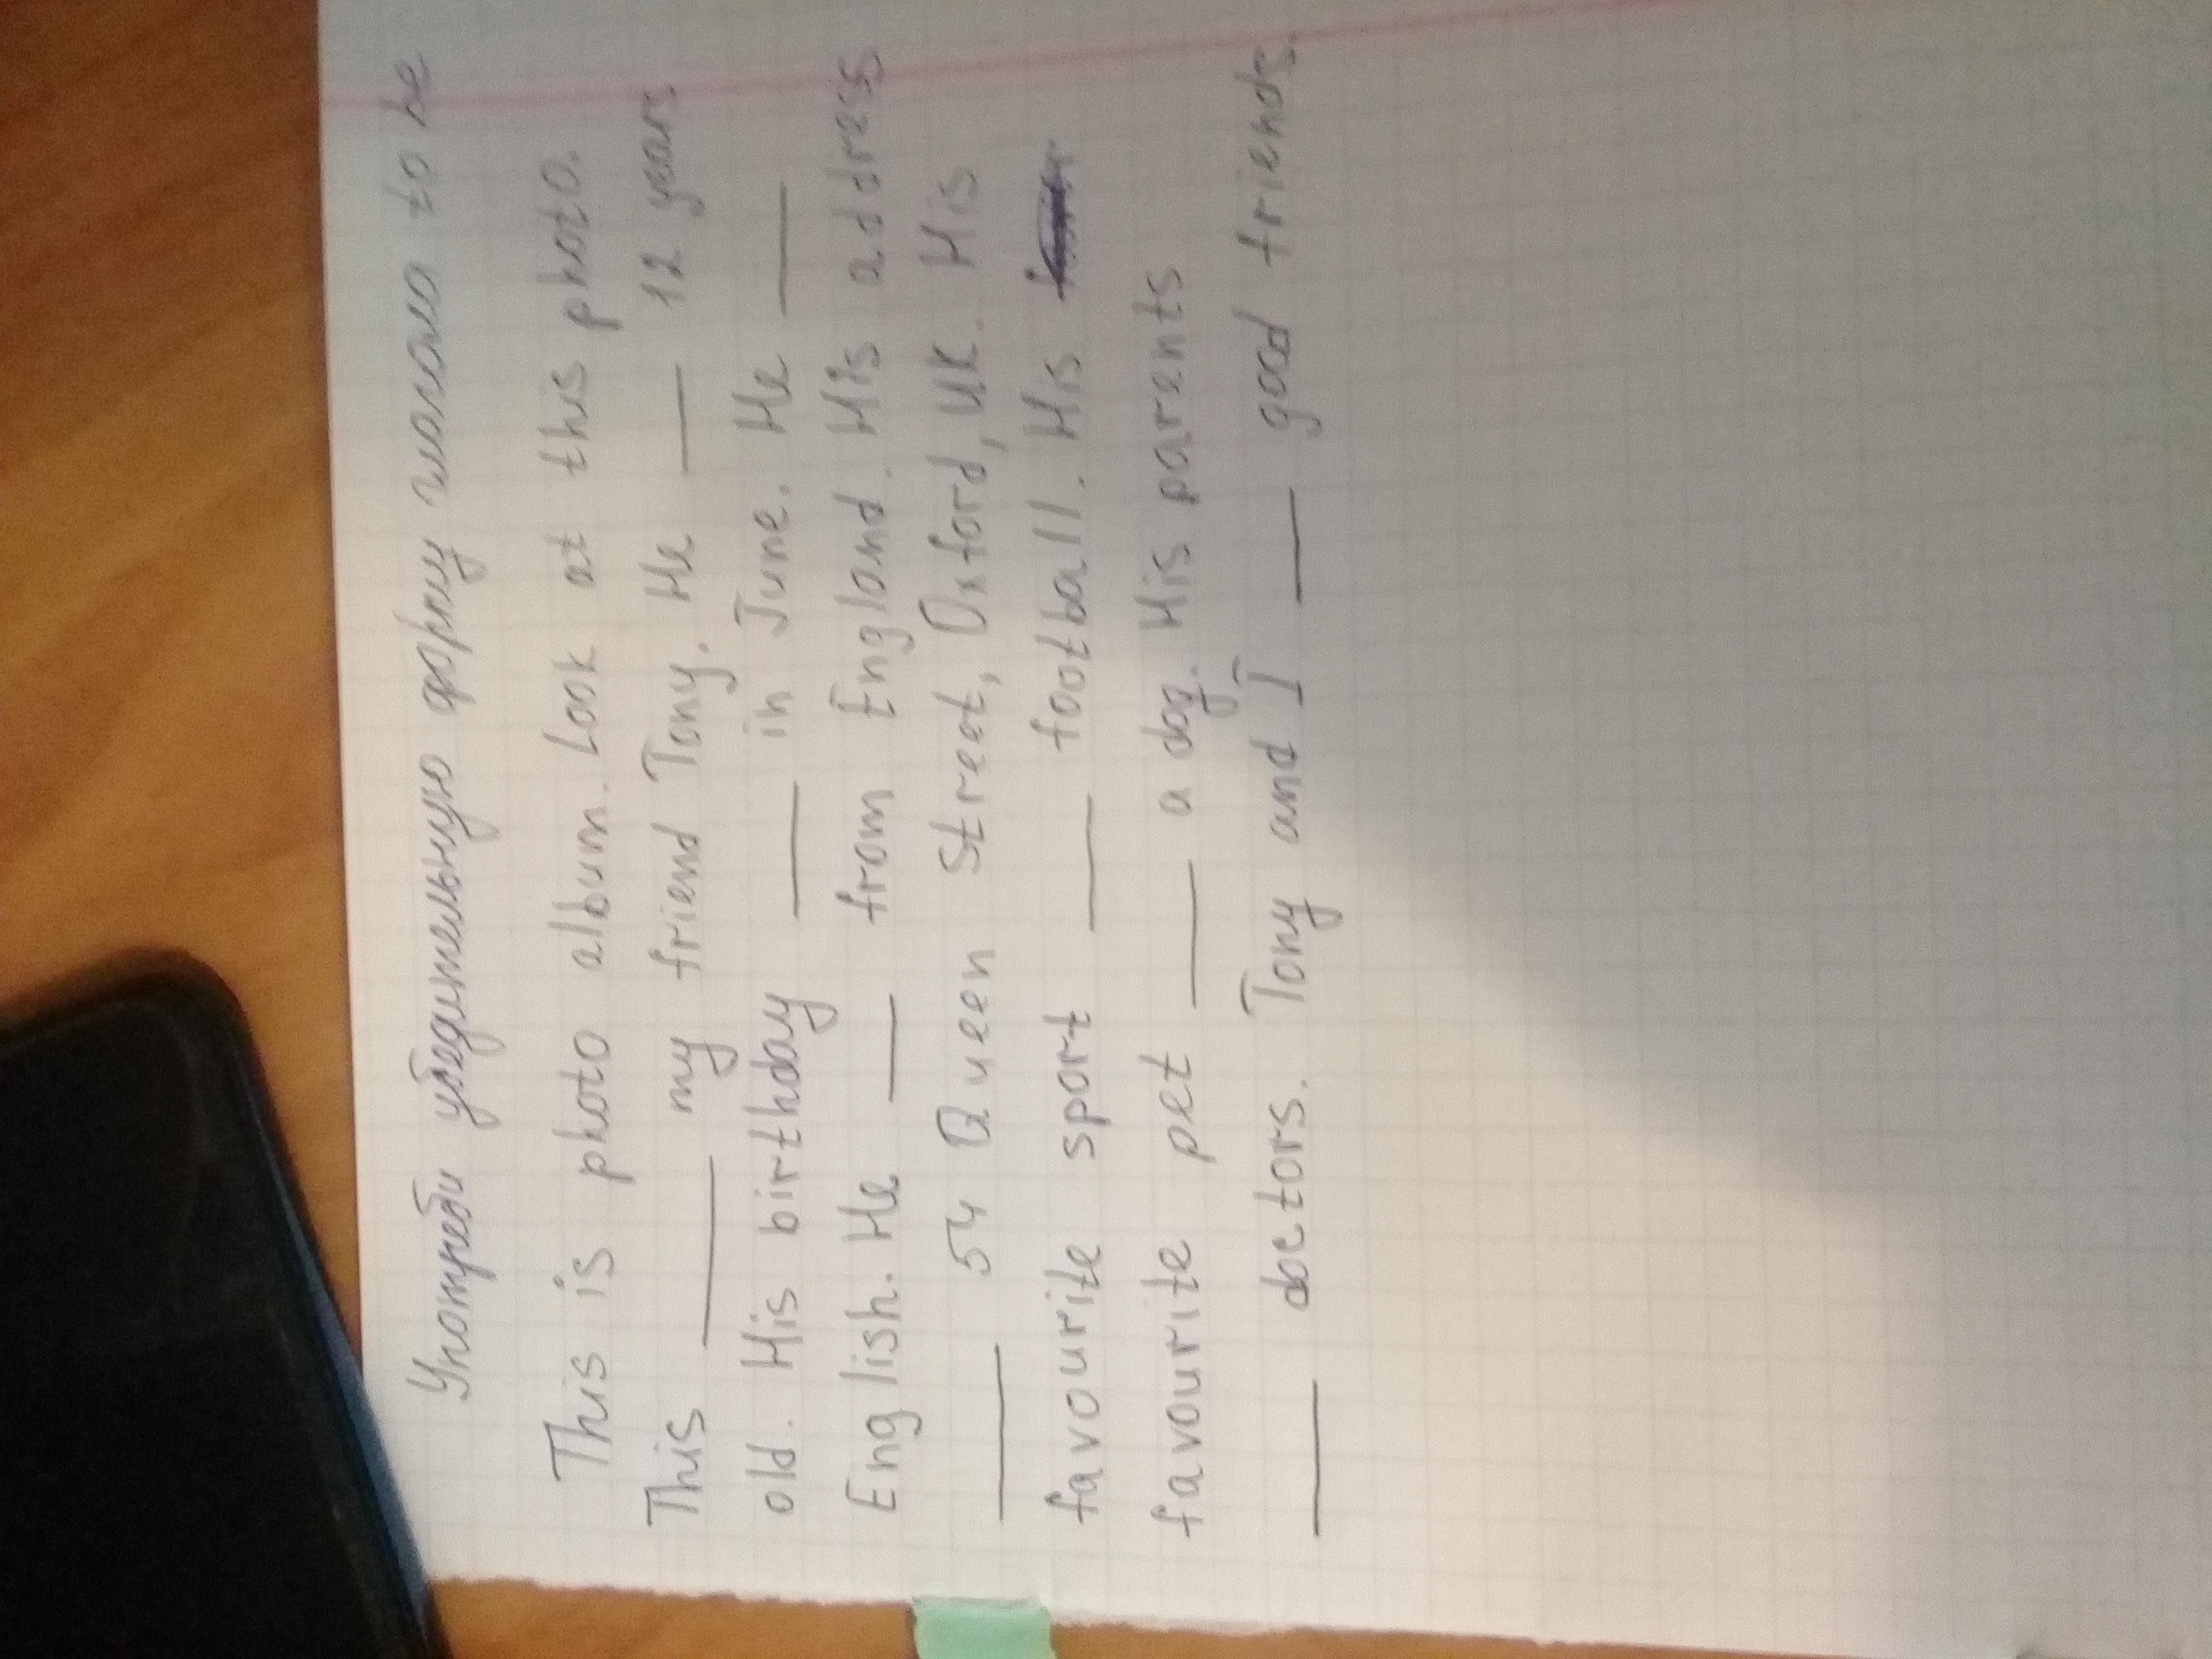 Употреби убедительную форму глагола to be
This is photo album. Look at this photo.
This ____ my friend Tony. He ___ 12 years
old. His birthday ____ in June. He ____
English. He ___ from England. His address
____ 54 Queen Street, Oxford, UK. His
favourite sport ____ football. His
favourite pet ____ a dog. His parents
____ doctors. Tony and I ___ good friends.